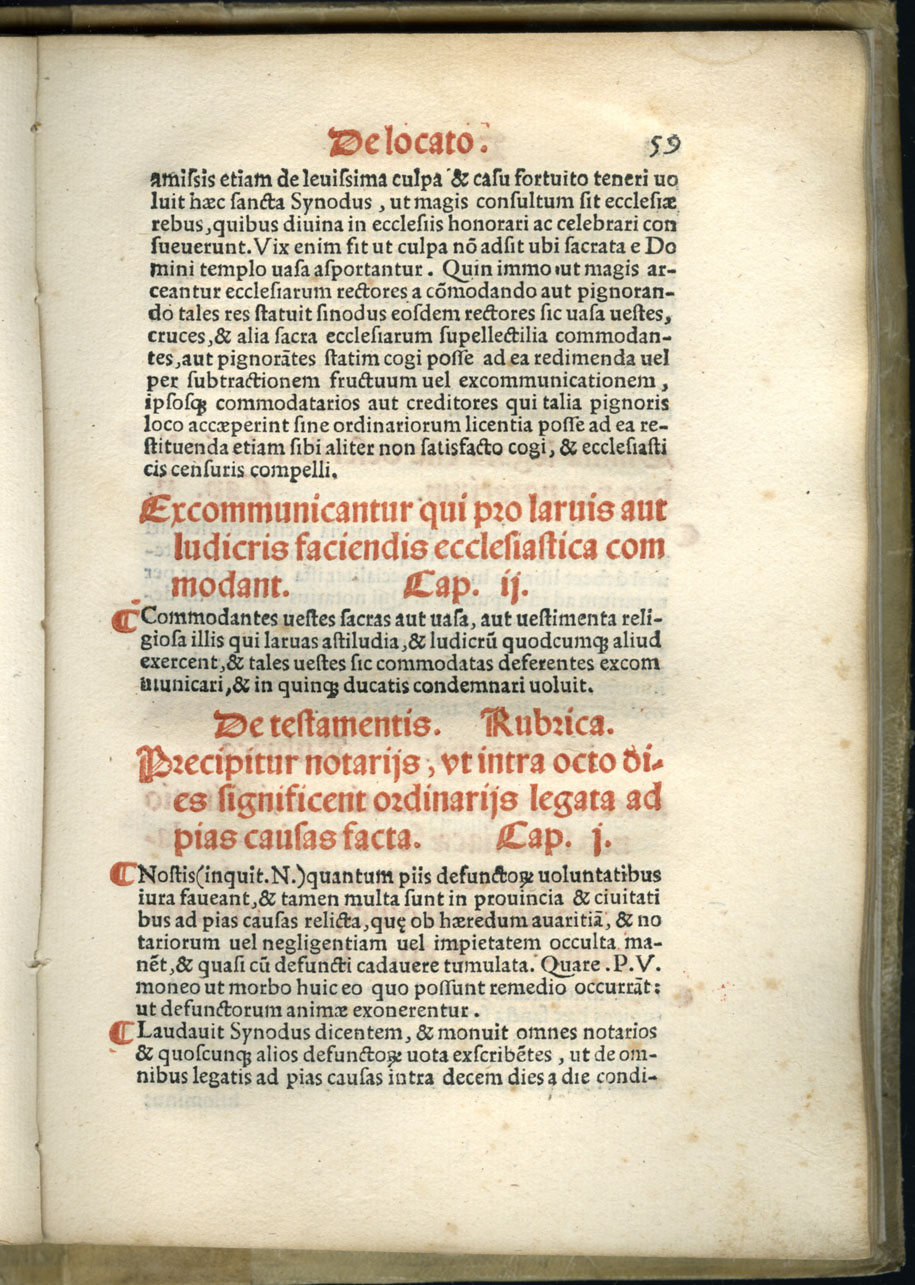 De locato.
59
amissis etiam de leuissima culpa & casu fortuito teneri uo
luit hæc sancta Synodus, ut magis consultum sit ecclesiæ
rebus, quibus diuina in ecclesiis honorari ac celebrari con
sueuerunt. Vix enim fit ut culpa nō adsit ubi sacrata e Do
mini templo uasa asportantur. Quin immo ut magis ar-
ceantur ecclesiarum rectores a cōmodando aut pignoran-
do tales res statuit sinodus eosdem rectores sic uasa uestes,
cruces, & alia sacra ecclesiarum supellectilia commodan-
tes, aut pignorātes statim cogi posse ad ea redimenda uel
per subtractionem fructuum uel excommunicationem,
ipsosqꝫ commodatarios aut creditores qui talia pignoris
loco accæperint sine ordinariorum licentia posse ad ea re-
stituenda etiam sibi aliter non satisfacto cogi, & ecclesiasti
cis censuris compelli.
Excommunicantur qui pro laruis aut
ludicris faciendis ecclesiastica com
modant. Cap. ij.
¶ Commodantes uestes sacras aut uasa, aut uestimenta reli-
giosa illis qui laruas astiludia, & ludicrū quodcumqꝫ aliud
exercent, & tales uestes sic commodatas deferentes excom
municari, & in quinqꝫ ducatis condemnari uoluit.
De testamentis. Rubrica.
Precipitur notarijs, vt intra octo di-
es significent ordinarijs legata ad
pias causas facta. Cap. j.
¶ Nostis (inquit. N.) quantum piis defunctoꝝ uoluntatibus
iura faueant, & tamen multa sunt in prouincia & ciuitati
bus ad pias causas relicta, quę ob hæredum auaritiā, & no
tariorum uel negligentiam uel impietatem occulta ma-
nēt, & quasi cū defuncti cadauere tumulata. Quare .P.V.
moneo ut morbo huic eo quo possunt remedio occurrāt:
ut defunctorum animæ exonerentur.
¶ Laudauit Synodus dicentem, & monuit omnes notarios
& quoscunqꝫ alios defunctoꝝ uota exscribētes, ut de om-
nibus legatis ad pias causas intra decem dies a die condi-